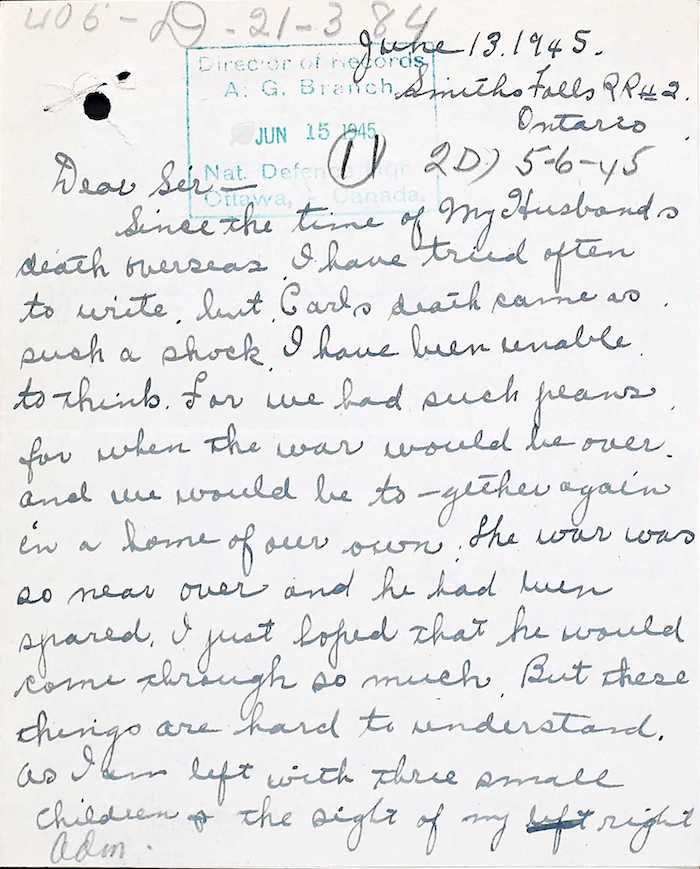 405-D-21-384
June 13. 1945.
Director of Records
A. G. Branch
Smiths Falls RR#2.
Ontario
JUN 15 1945
(1) 2D) 5-6-45
Nat. Defence Hqr.
Ottawa, - Canada.
Dear Sir-
Since the time of My Husbands
death overseas I have tried often
to write. but, Carls death came as
such a shock, I have been unable
to think. For we had such peans
for when the war would be over.
and we would be to-gether again
in a home of our own. The war was
so near over and he had been
spared. I just hoped that he would
come through so much. But these
things are hard to understand.
as I am left with three small
children & the sight of my left right
adm.